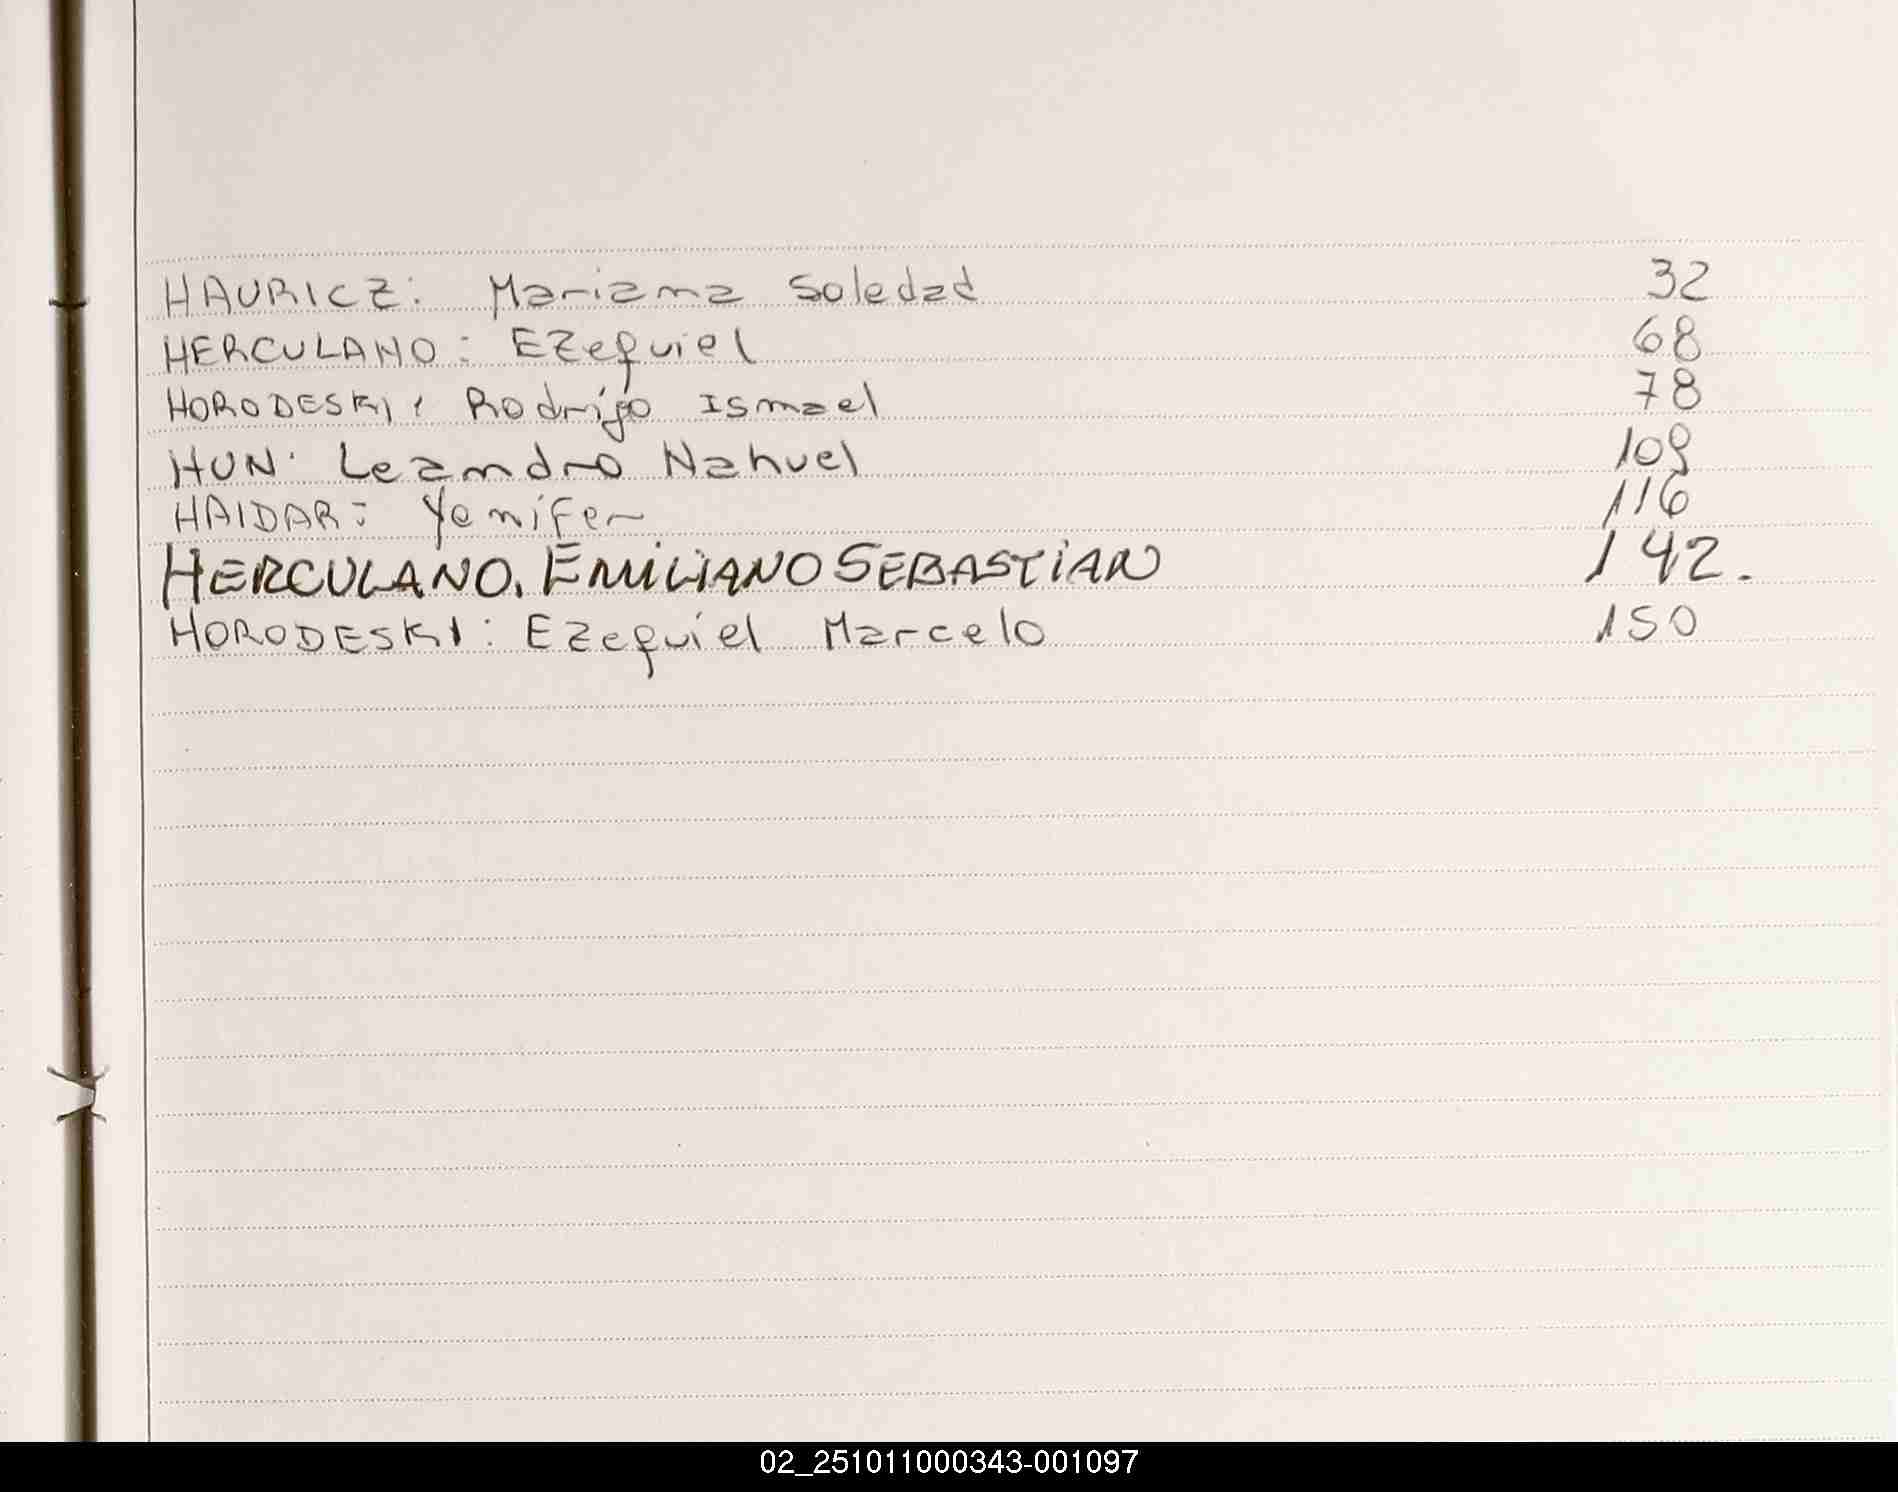 HAURICZ: Mariana Soledad 32
HERCULANO: Ezequiel 68
HORODESKI: Rodrigo Ismael 78
HUN. Leandro Nahuel 109
HAIDAR: Yenifer 116
HERCULANO, EMILIANO SEBASTIAN 142.
HORODESKI: Ezequiel Marcelo 150
02_251011000343-001097